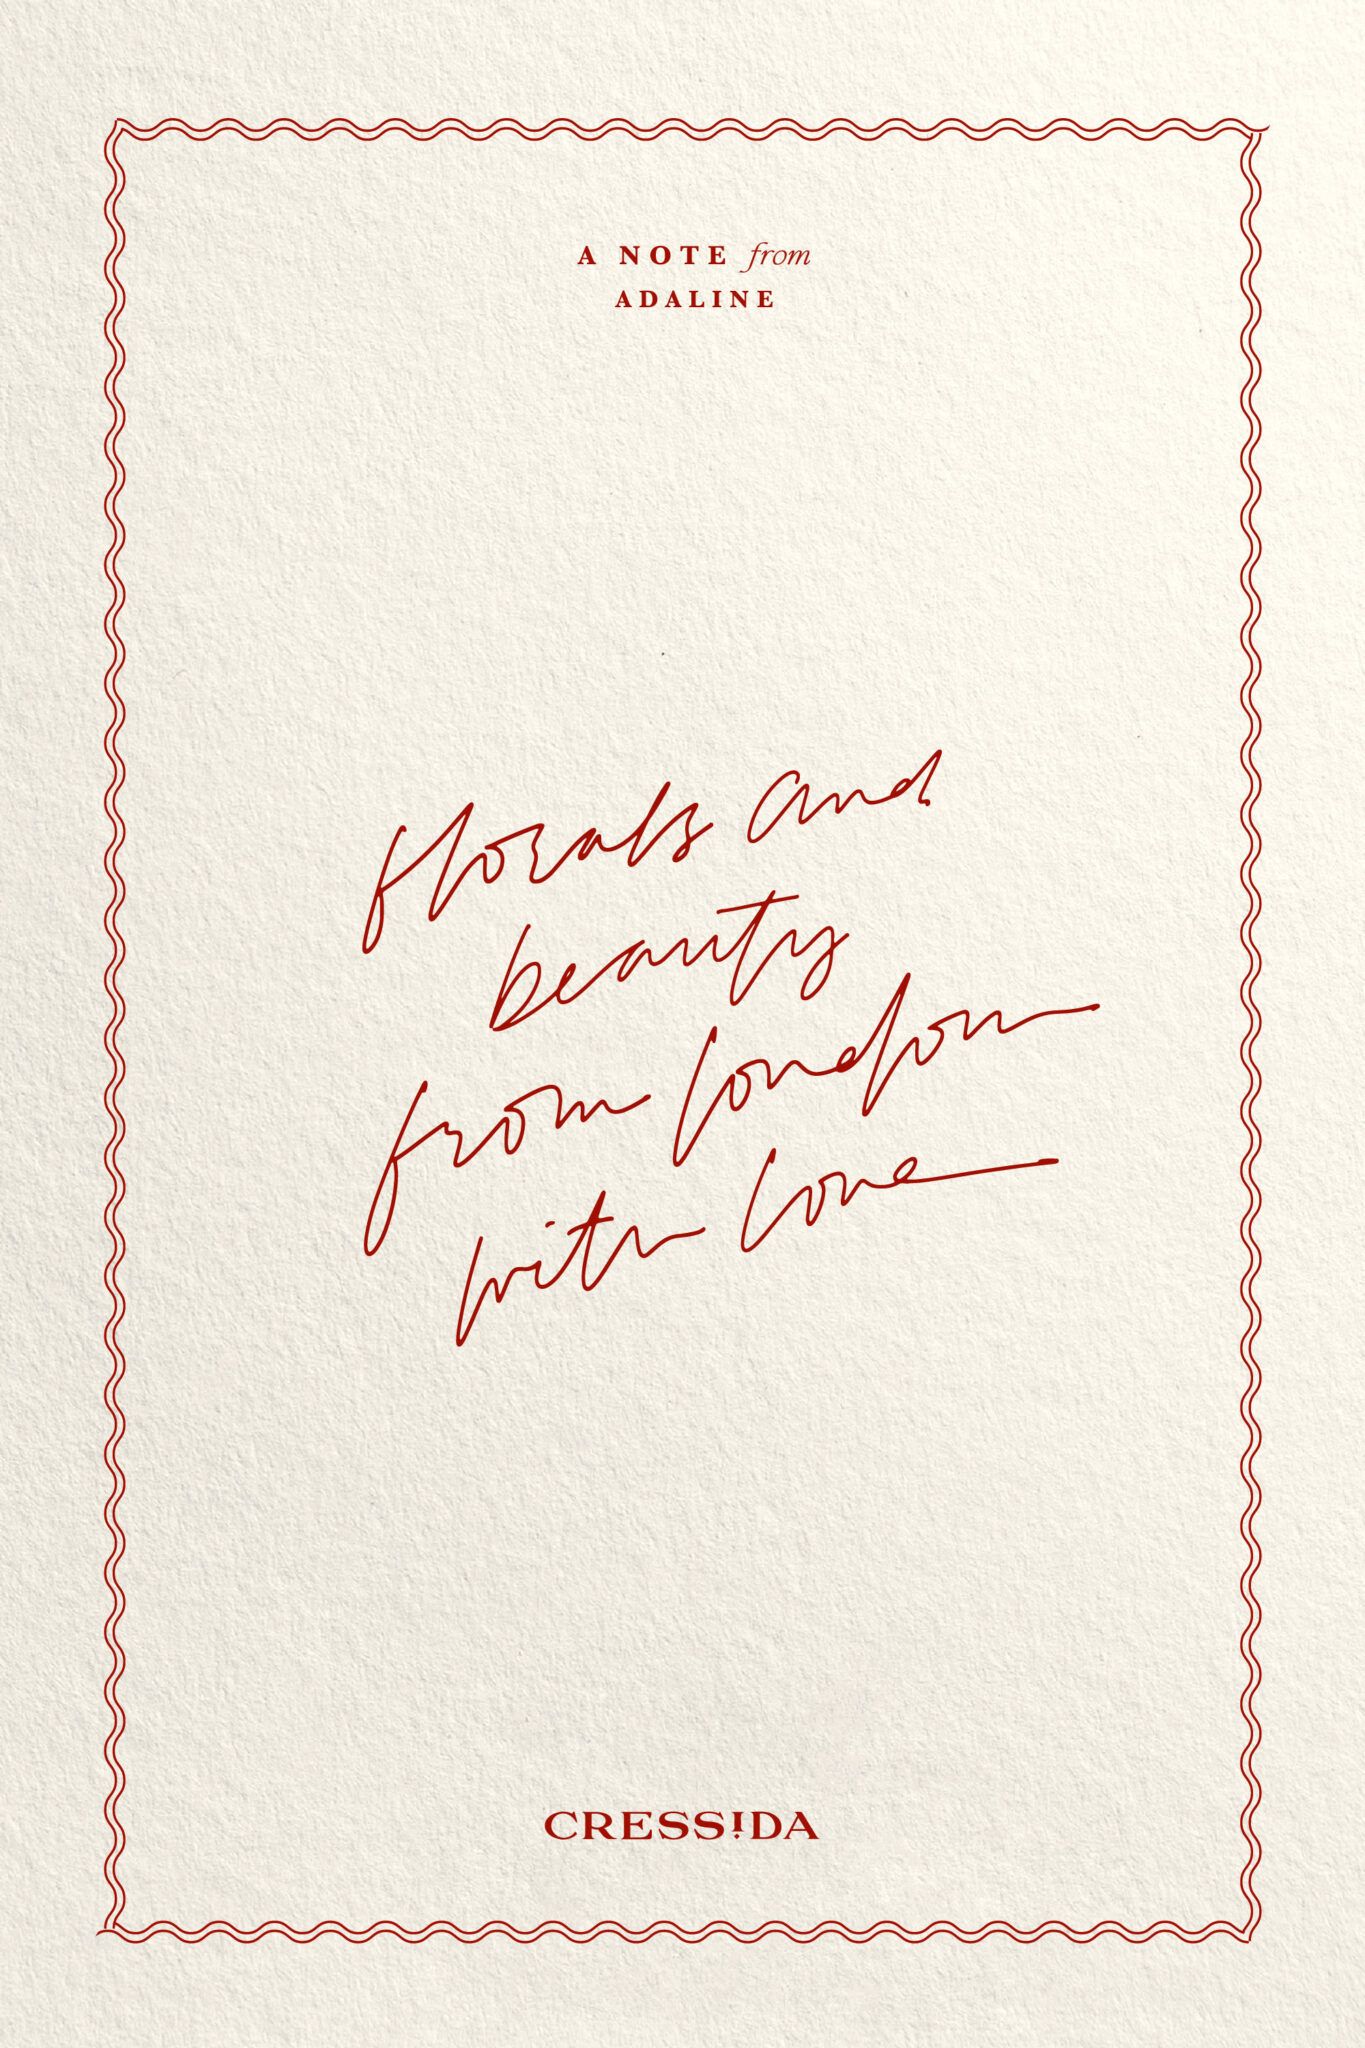 A NOTE from
ADALINE
florals and
beauty
from london
with love
CRESSIDA